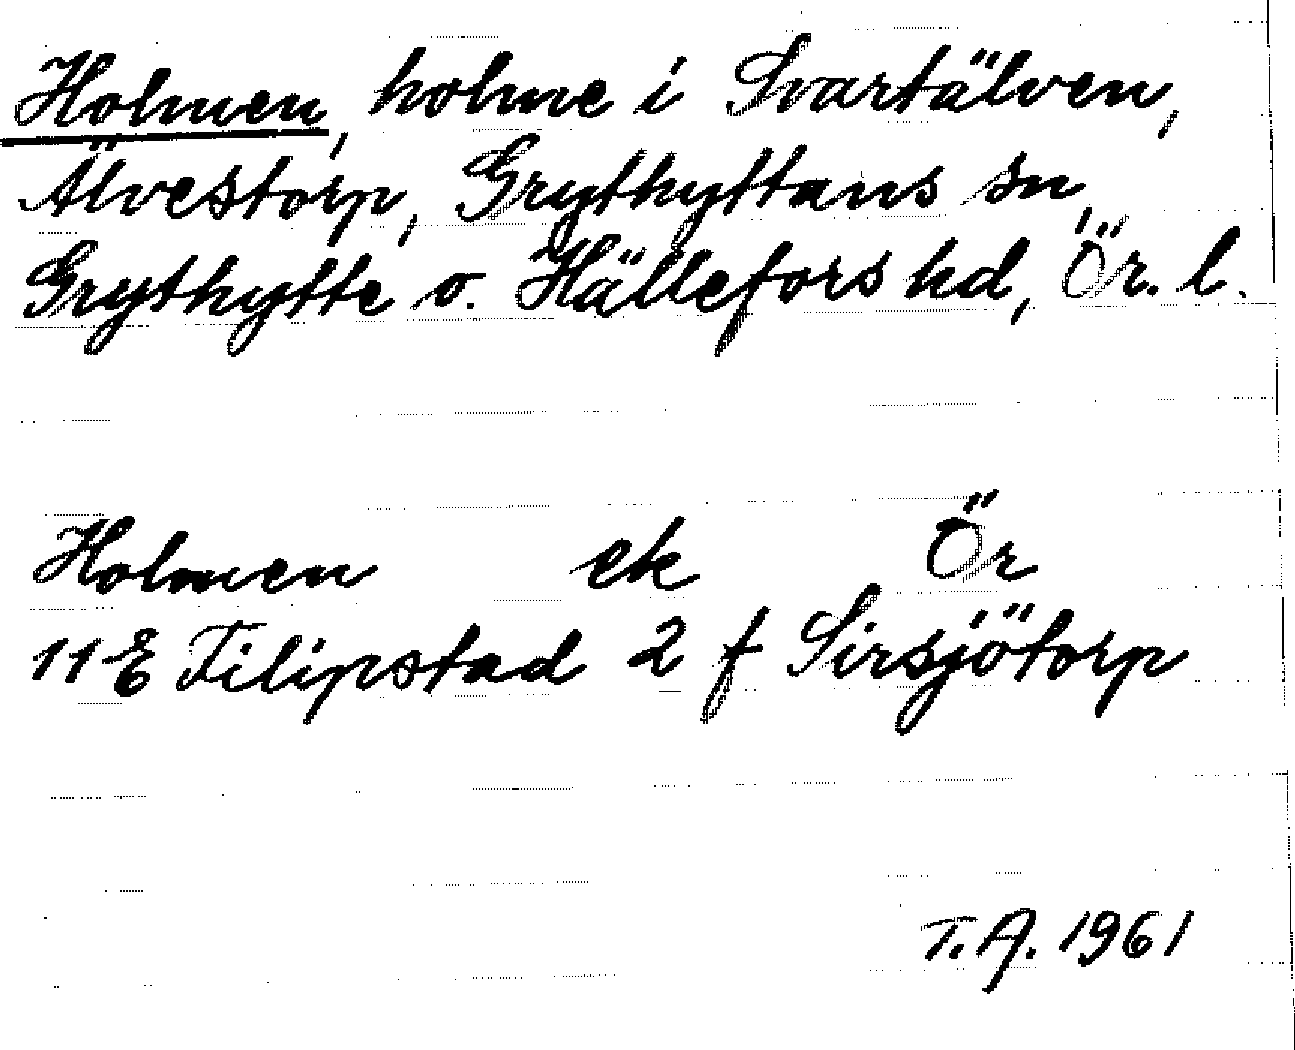 Holmen, holme i Svartälven,
Älvestorp, Grythyttans sn,
Grythytte o. Hällefors hd, Ör. l.
Holmen ek Ör
11E Filipstad 2 f Sirsjötorp
T.A. 1961